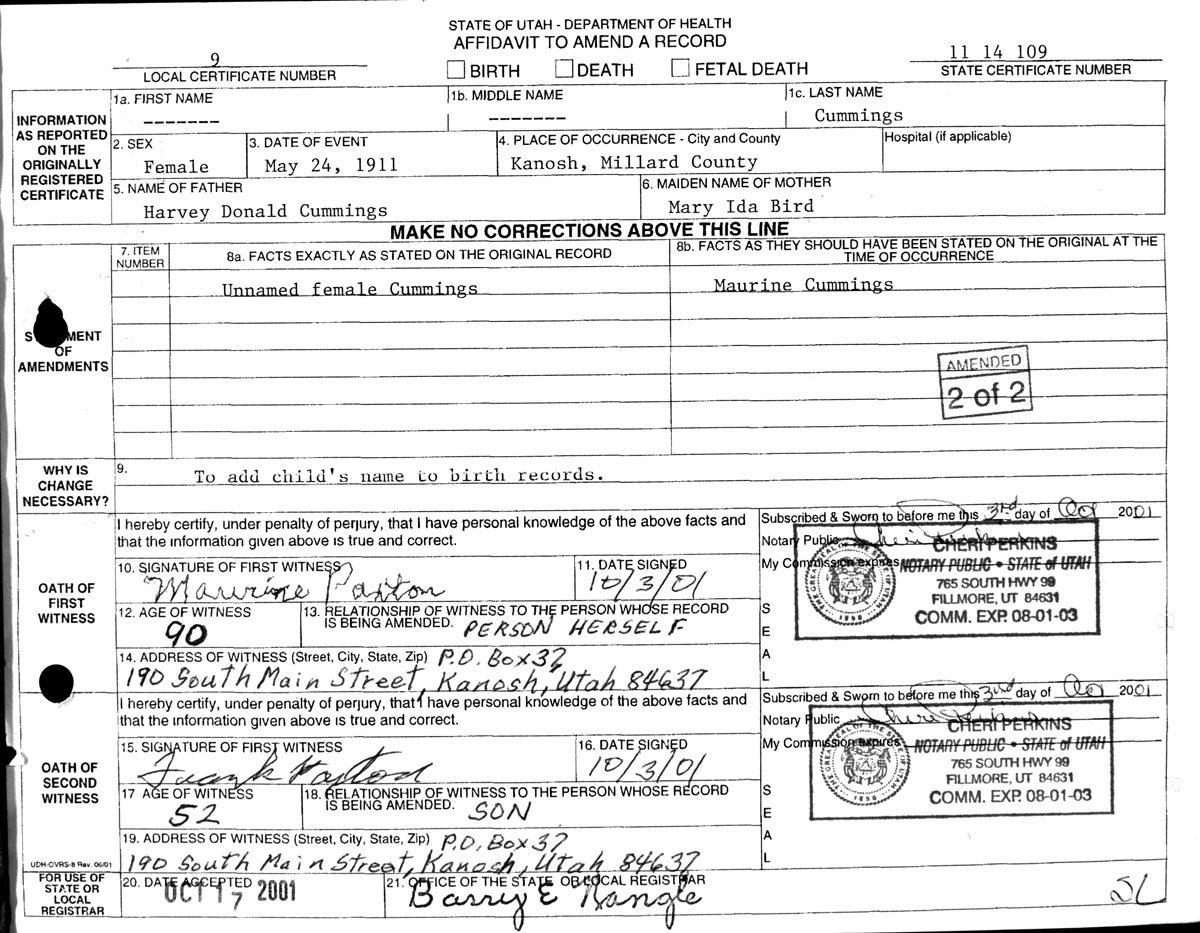 STATE OF UTAH - DEPARTMENT OF HEALTH
AFFIDAVIT TO AMEND A RECORD
9
LOCAL CERTIFICATE NUMBER
BIRTH DEATH FETAL DEATH
11 14 109
STATE CERTIFICATE NUMBER
INFORMATION
AS REPORTED
ON THE
ORIGINALLY
REGISTERED
CERTIFICATE
1a. FIRST NAME
-------
1b. MIDDLE NAME
-------
1c. LAST NAME
Cummings
2. SEX
Female
3. DATE OF EVENT
May 24, 1911
4. PLACE OF OCCURRENCE - City and County
Kanosh, Millard County
Hospital (if applicable)
5. NAME OF FATHER
Harvey Donald Cummings
6. MAIDEN NAME OF MOTHER
Mary Ida Bird
MAKE NO CORRECTIONS ABOVE THIS LINE
MENT
OF
AMENDMENTS
7. ITEM
NUMBER
8a. FACTS EXACTLY AS STATED ON THE ORIGINAL RECORD
8b. FACTS AS THEY SHOULD HAVE BEEN STATED ON THE ORIGINAL AT THE
TIME OF OCCURRENCE
Unnamed female Cummings
Maurine Cummings
AMENDED
2 of 2
WHY IS
CHANGE
NECESSARY?
9.
To add child's name to birth records.
OATH OF
FIRST
WITNESS
I hereby certify, under penalty of perjury, that I have personal knowledge of the above facts and
that the information given above is true and correct.
10. SIGNATURE OF FIRST WITNESS
Maurine Paxton
11. DATE SIGNED
10/3/01
12. AGE OF WITNESS
90
13. RELATIONSHIP OF WITNESS TO THE PERSON WHOSE RECORD
IS BEING AMENDED.
PERSON HERSELF
14. ADDRESS OF WITNESS (Street, City, State, Zip) P.O. Box 37
190 South Main Street, Kanosh, Utah 84637
Subscribed & Sworn to before me this 3rd day of Oct 2001
Notary Public
My Commission expires
SEAL
THE GREAT SEAL OF THE STATE OF UTAH
1896
CHERI PERKINS
NOTARY PUBLIC • STATE of UTAH
765 SOUTH HWY 99
FILLMORE, UT 84631
COMM. EXP. 08-01-03
OATH OF
SECOND
WITNESS
I hereby certify, under penalty of perjury, that I have personal knowledge of the above facts and
that the information given above is true and correct.
15. SIGNATURE OF FIRST WITNESS
Frank Paxton
16. DATE SIGNED
10/3/01
17 AGE OF WITNESS
52
18. RELATIONSHIP OF WITNESS TO THE PERSON WHOSE RECORD
IS BEING AMENDED.
SON
19. ADDRESS OF WITNESS (Street, City, State, Zip) P.O. Box 37
190 South Main Street, Kanosh, Utah 84637
Subscribed & Sworn to before me this 3rd day of Oct 2001
Notary Public
My Commission expires
SEAL
THE GREAT SEAL OF THE STATE OF UTAH
1896
CHERI PERKINS
NOTARY PUBLIC • STATE of UTAH
765 SOUTH HWY 99
FILLMORE, UT 84631
COMM. EXP. 08-01-03
UDH-OVRS-8 Rev. 06/01
FOR USE OF
STATE OR
LOCAL
REGISTRAR
20. DATE ACCEPTED
OCT 17 2001
21. OFFICE OF THE STATE OR LOCAL REGISTRAR
Barry E Nangle
SL